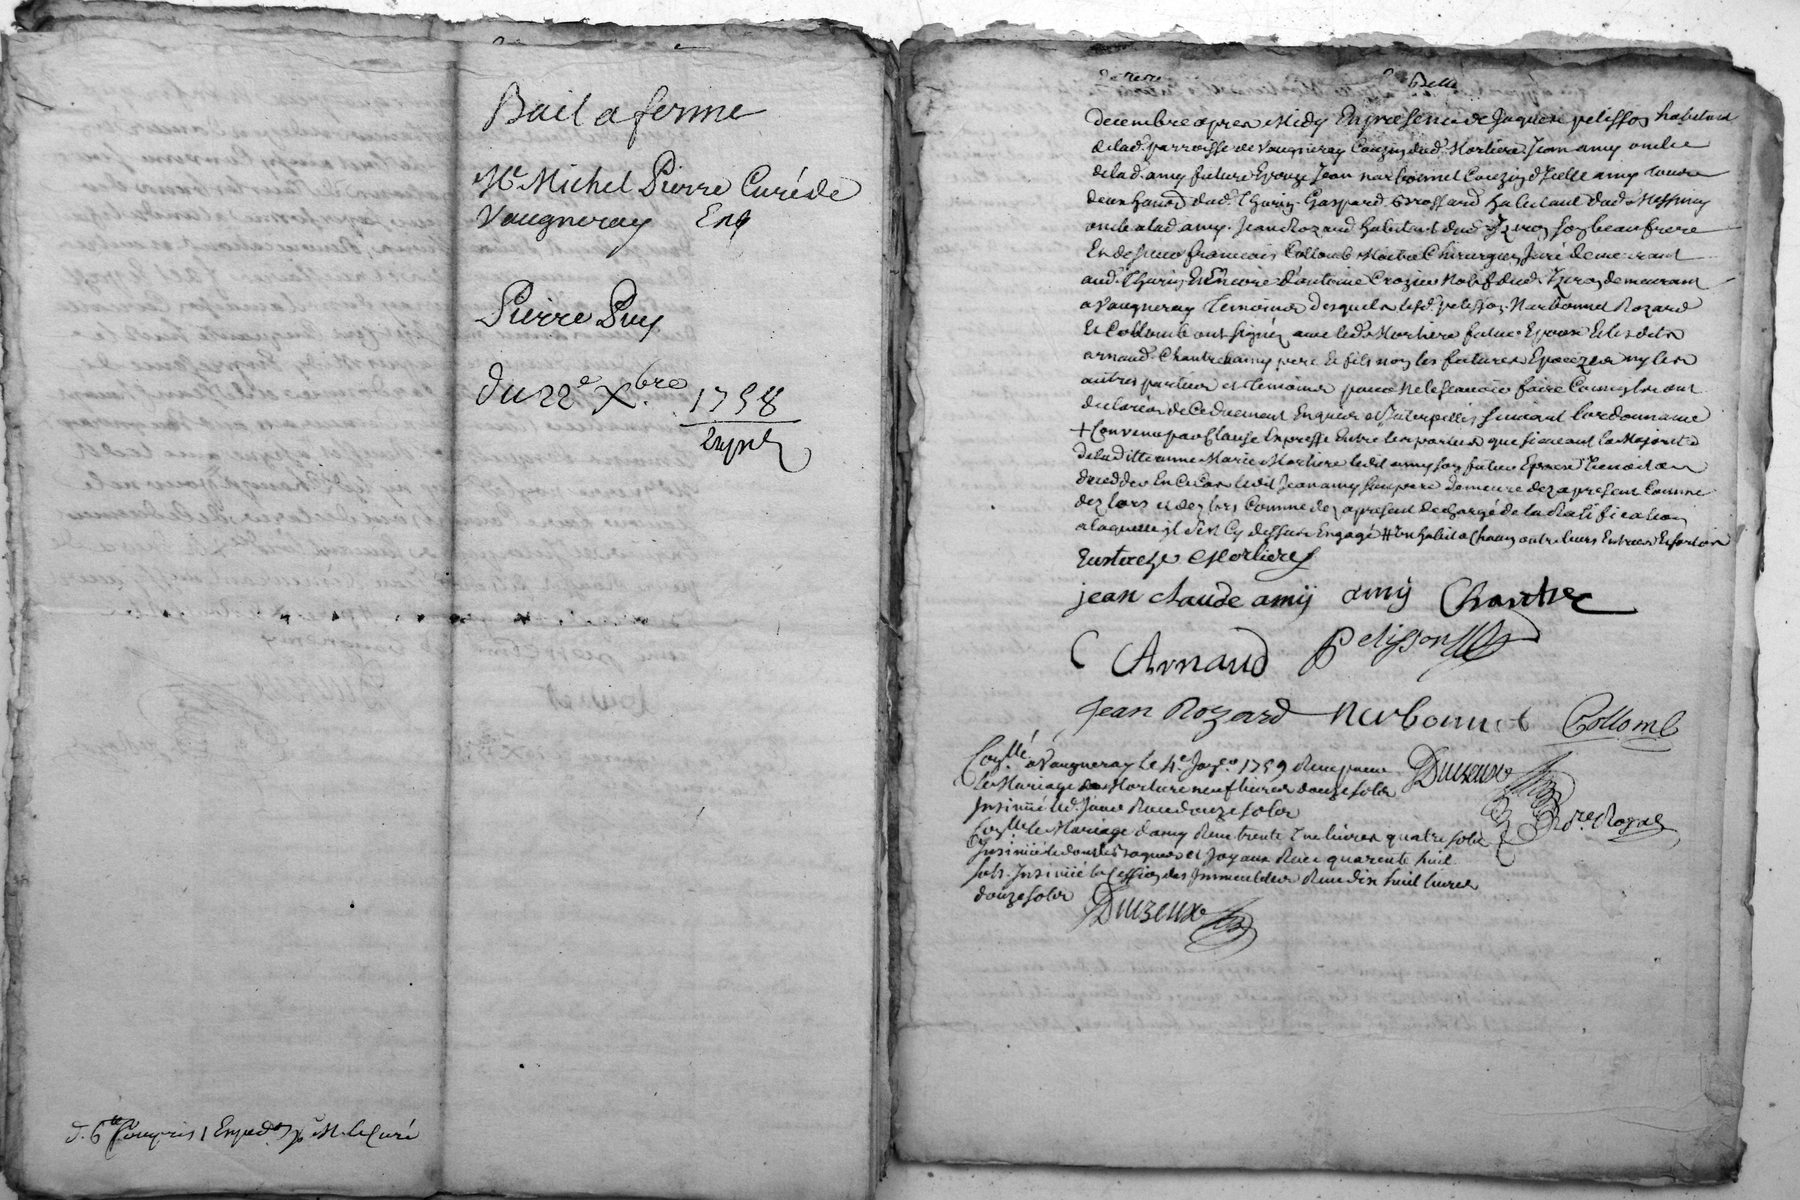 Bail a ferme
Mr. Michel Pierre Curé de
Vaugneray
Pierre Puy
du 22e Xbre. 1758
Compris 1 Exped. pr. M. le Curé
decembre apres Midy En presence de Jaques pelisson habitant
de lad. parroisse de Vaugneray Couzin dud. Mortiere Jean amy oncle
de lad. amy future Epouze Jean narbonnet Couzin d'Icelle amy tous
deux dud. Thurin Gaspard habitant dud. Messimy
oncle a lad. amy. Jean Rozard habitant dud. son beaufrere
francois Collomb Maitre Chirurgien Juré demeurant
aud. Thurin Et Encore d'antoine Crozier dud. demeurant
a Vaugneray temoins desquels lesd. pelisson Narbonnet Rozard
Et Collomb ont signéz avec led. Mortiere futur Epoux Et lesdits
arnaud. Chantre amy pere Et fils non les futures Epouzes ny les
autres parties et temoins pour ne le scavoir faire Comme ils ont
declaréz de Ce duement Enquis et Interpellés suivant l'ordonnance
+ Convenu par Clause Expresse Entre les parties que sieurant la Majorité
de laditte anne Marie Mortiere ledit amy son futur Epoux
En Ce Cas ledit Jean amy son pere demeure dez a present Comme
dez lors et dez lors Comme dez a present dechargé de la Ratification
a laquelle il s'est Cy dessus Engagé # un habit a Chacun outre leurs
Mortiere
jean claude amÿ amÿ Chantre
C Arnaud Pelisson
Jean Rozard Narbonnet Collomb
Conllé a Vaugneray le 4e. Janr. 1759 Reçu pour
le Mariage de Mortiere neuf livres douze sols Duizeux
Insinüé led. Jour Reçu douze sols
Conllé le Mariage d'amy Reçu trente Une livres quatre sols
Insinüé le don des bagues et Joyaux Reçu quarente huit
sols. Insinüé la Cession des Immeubles Reçu dix huit livres
douze sols Duizeux